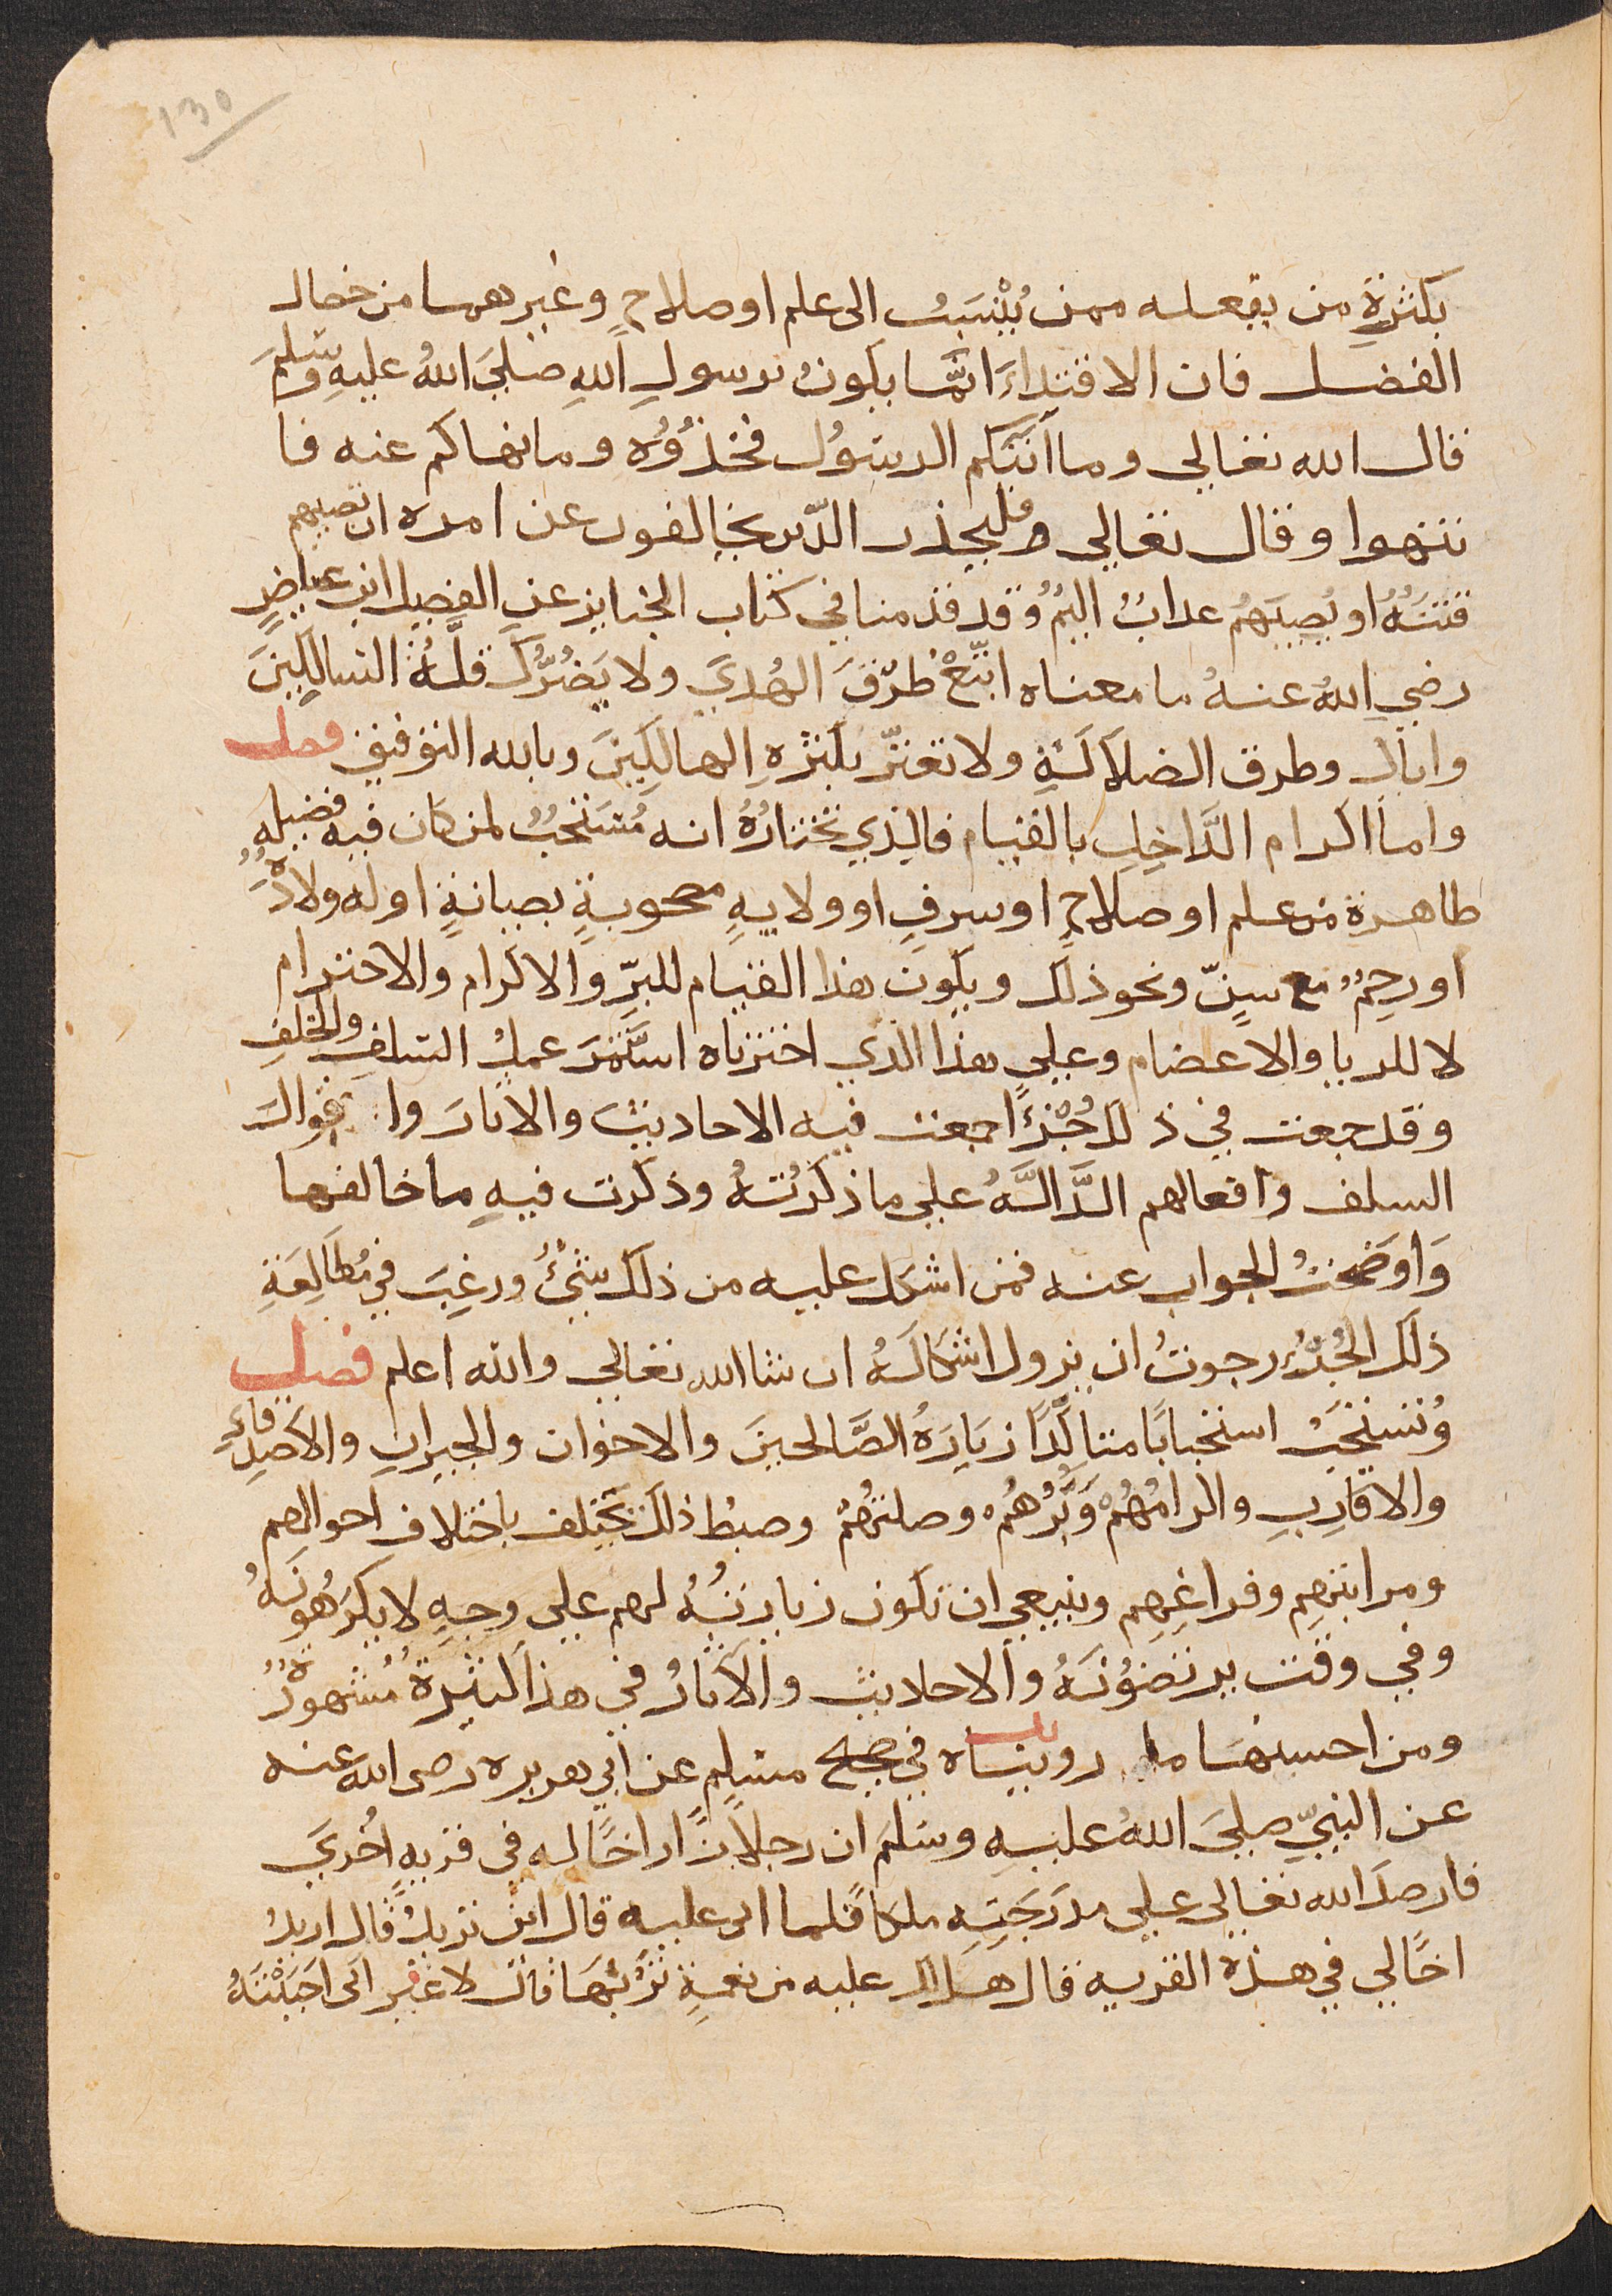 130
بكثرةِ من يفعله ممن يُنْسَبُ الى علم او صلاحٍ وغيرهما من خصال
الفضل فان الاقتداءَ انمَّا يكونُ برسولِ اللهِ صلىَ اللهُ عليهِ وسَلمَ
قال الله تعالى وما اتَتكم الرسَوُل فخذوُه وما نهاكم عنه فا
نتهوا وقال تعالى وفليحذر الدّين يخالفون عن امره ان تصيبهم
فتنَةُ او يُصِيبَهُم عدابُ اليمُ وقد قدمنا في كتاب الجنايز عن الفضيل ابن عياضٍ
رضي اللهُ عنهُ ما معناه اتبّعْ طرُقَ الهُدىَ ولا يَضُرُّكَ قلَّةُ السالِكينَ
واياك وطرق الضلاَلَةِ ولا تغترّ بكثرةِ الهالِكِينَ وبالله التوفيق فصل
واما اكرام الدَّاخِلِ بالقيام فالذي نختارُهُ انه مُستَحبٌ لمن كان فيه فضيله
ظاهرة من علم او صلاحٍ او سرفٍ او ولايهٍ مصحوبةٍ بصيانةٍ او له ولادَةٌ
او رحِمٌ مع سنٍّ ونحو ذلك ويكون هذا القيام للبرِّ والاكرام والاحترام
لا للريا والاعضام وعلى هذا الذي اخترناه استَّمَرَ عملُ السَلفِ والخلفِ
وقد جمعت في ذلك جُزْءًا جمعت فيه الاحاديثَ والاثارَ وا قوالَ
السلف وافعالهم الدَّالَّهُ على ما ذكَرْتهُ وذكرت فيهِ ما خالفها
وَاوَضحَتُ الجواب عنه فمن اشكل عليه من ذلك شئُ ورغِبَ في مُطَالَعَةِ
ذلك الجُزْءِ رجوتُ ان يزول اشكالَهُ ان شا الله تعالى والله اعلم فصل
وُتستحَبُ استحبابًا متاكّدًا زيَارَةُ الصَّالحينَ والاخوان والجيرانِ والاَصدِقاءِ
والاقارِبِ واكرامُهُمْ وَبَرُّهُمْ وصلتهُمْ وضبطُ ذلك يختلف باختلاف احوالهم
ومراتبهِم وفراغِهِم وينبغي ان تكون زيارتهُ لهم على وجهٍ لا يكرهُونَهُ
وفي وقت يرتضوْنَهُ والاحاديث والاَثارُ في هذا كثيرةُ مُشهوُرَةٌ
ومن احسنهَا ما رويناه في صحيح مسَلِم عن ابي هريره رضى الله عنه
عن النبيّ صلىَ اللهُ عليهِ وسَلمَ ان رجلاً زَار اخًا له في قريهٍ اُخرىَ
فارصدَ الله تعالى على مدرَجَتِهِ ملكا فلما اتى عليه قال اين تريدُ قَال اريدُ
اخًا لي في هذه القريه قال هل لك عليه من نعمةٍ تَرُبُّهَا قال لا غير انى احَبَبْتهُ